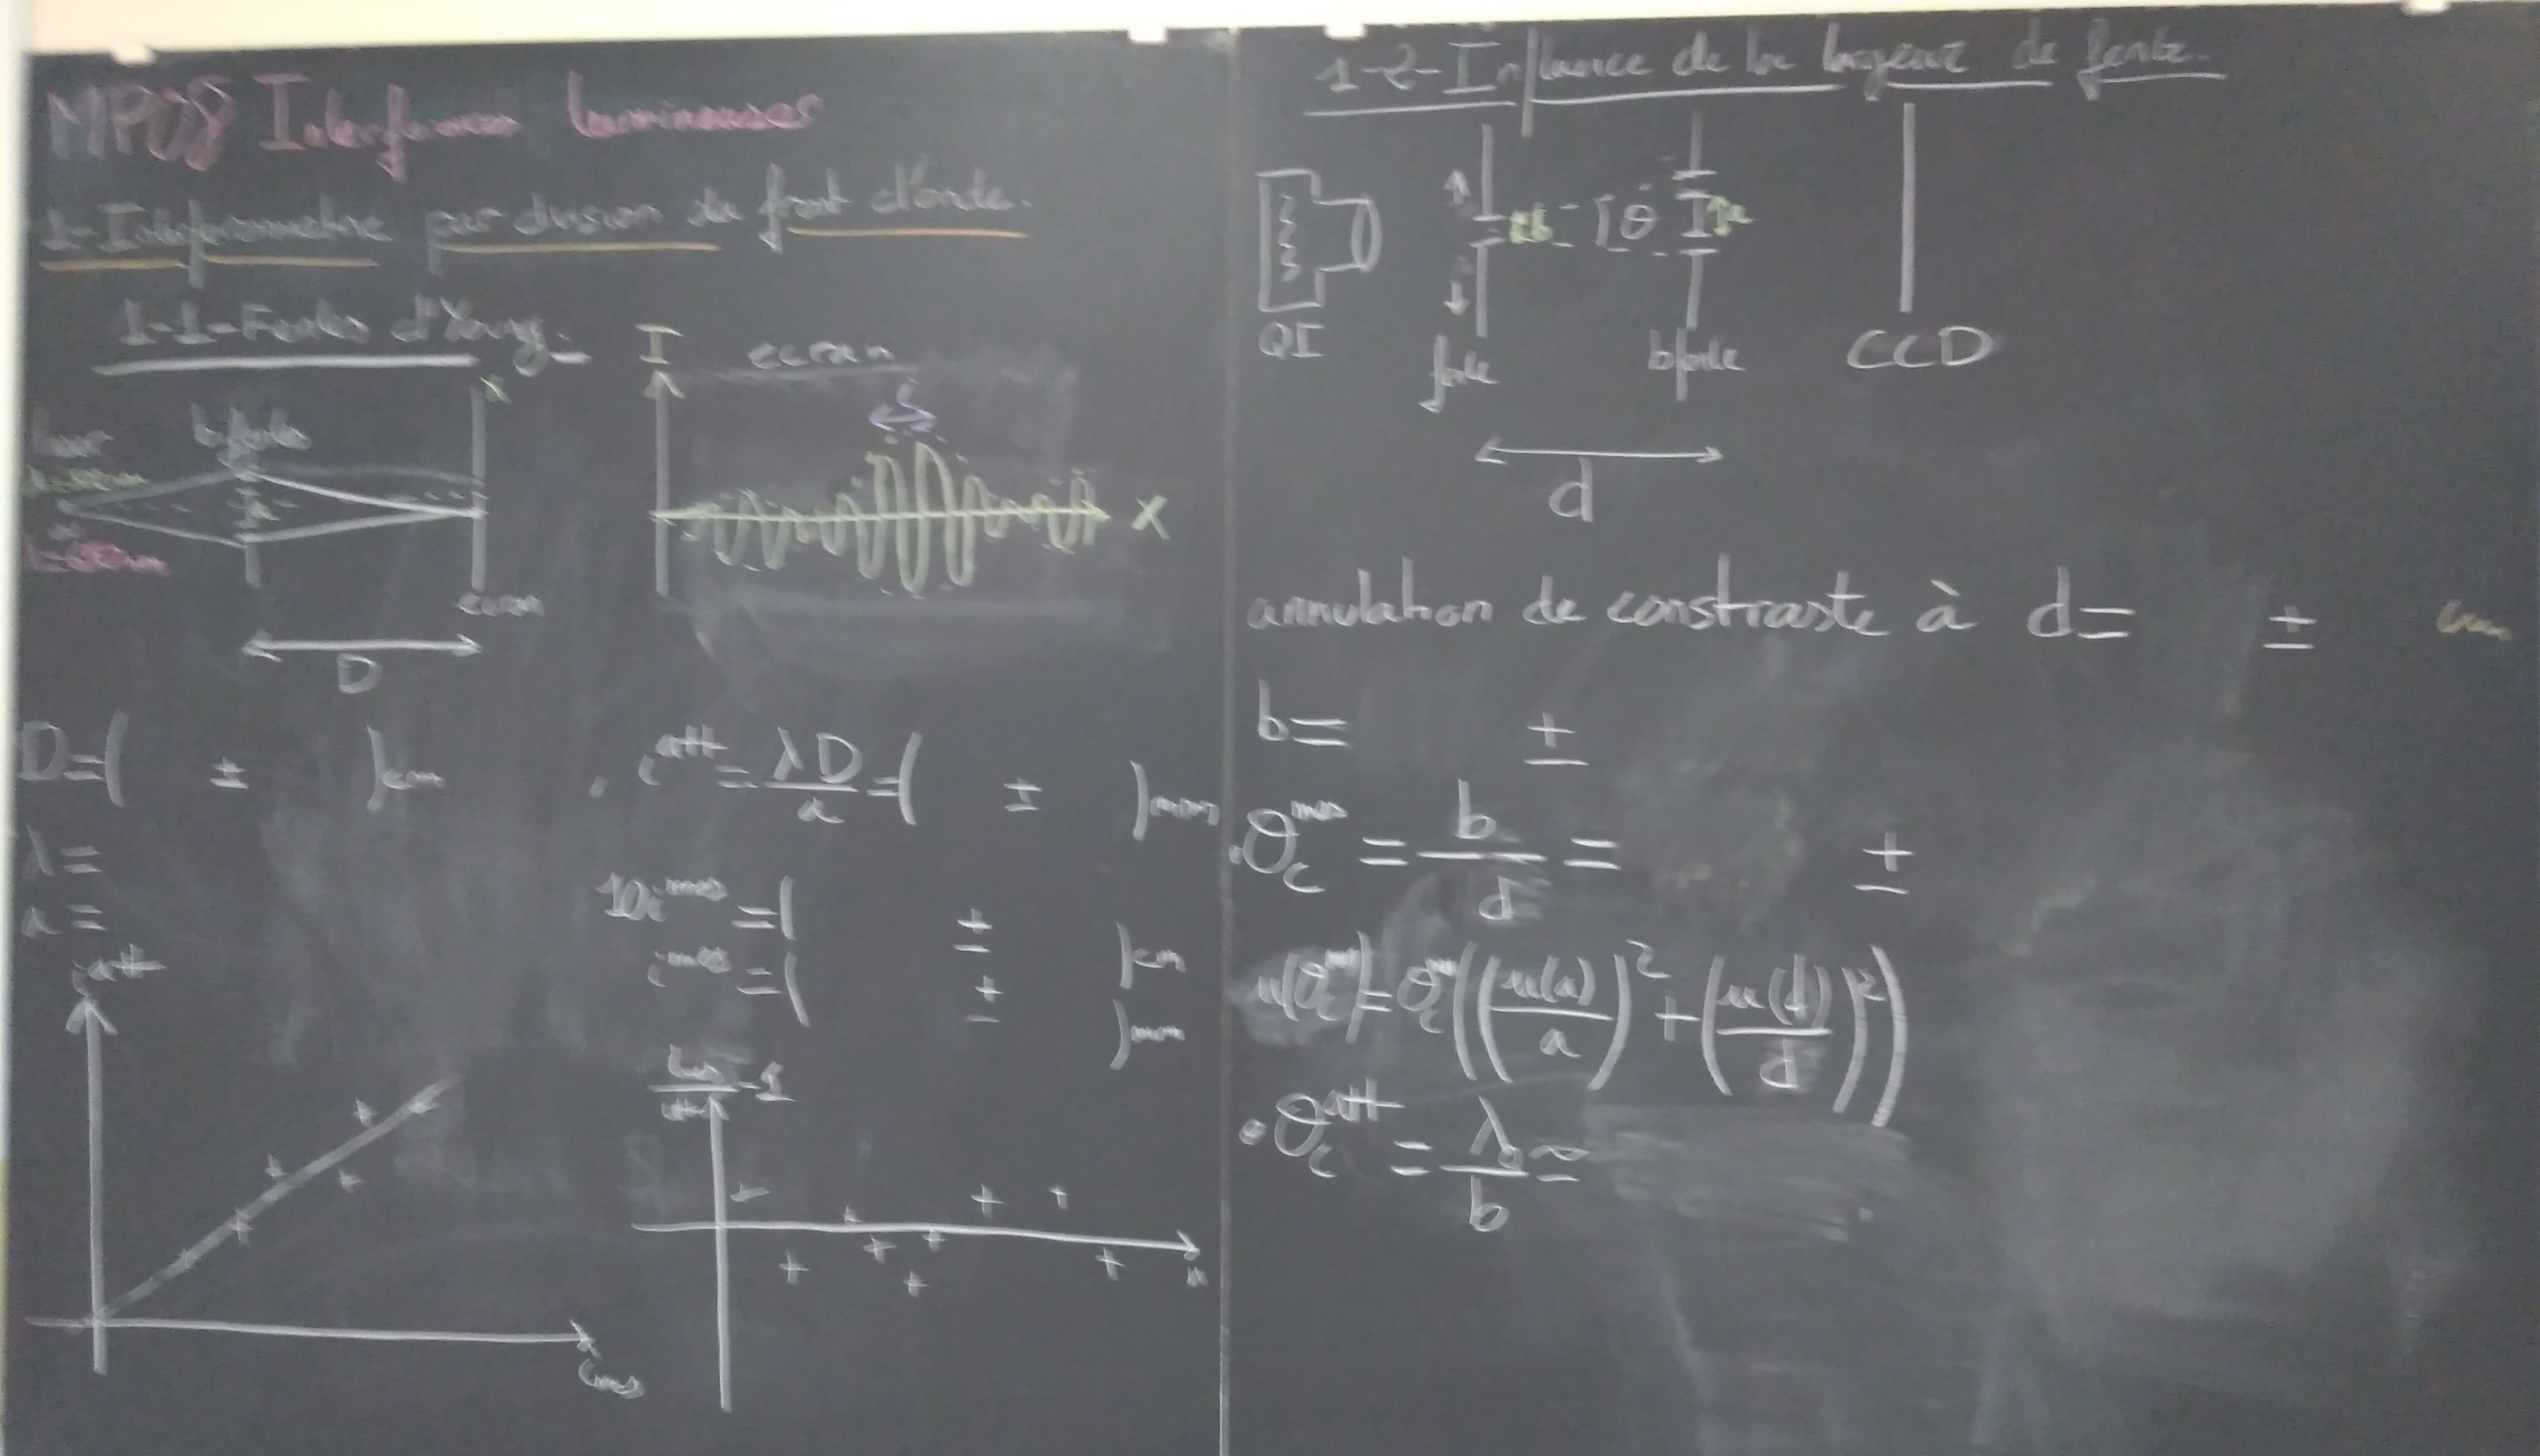 MP08 Interférences lumineuses
1-Interféromètre par division du front d'onde.
1-1-Fentes d'Young.
I
écran
x
laser
bifentes
a
i
X
écran
D
D=( ± )cm
λ=
a=
i^att = λD/a = ( ± )mm
10i^mes = ( ± )cm
i^mes = ( ± )mm
i^att
i_mes
i_mes/i_att - 1
1-2-Influence de la largeur de fente.
b
θ
a
QI
fente
bifente
CCD
d
annulation de constraste à d= ± cm
b= ±
• θ_c^mes = b/d = ±
u(θ_c^mes) = θ_c^m((u(a)/a)² + (u(d)/d)²)
• θ_c^att = λ_0/b ≃